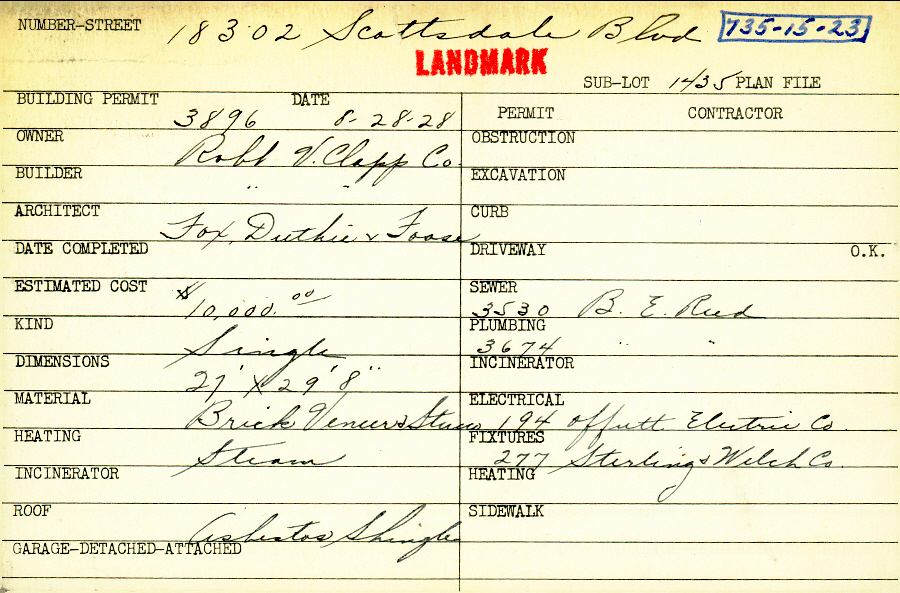 NUMBER-STREET 18302 Scottsdale Blvd 735-15-23
LANDMARK
SUB-LOT 1435 PLAN FILE
BUILDING PERMIT 3896 DATE 8-28-28
PERMIT CONTRACTOR
OWNER Robt V. Clapp Co.
OBSTRUCTION
BUILDER " "
EXCAVATION
ARCHITECT Fox, Duthie & Foose
CURB
DATE COMPLETED
DRIVEWAY O.K.
ESTIMATED COST $10,000.00
SEWER 3530 B. E. Reed
KIND Single
PLUMBING 3674 " "
DIMENSIONS 27' x 29' 8"
INCINERATOR
MATERIAL Brick Veneer & Stucco
ELECTRICAL 194 Offutt Electric Co.
HEATING Steam
FIXTURES 277 Sterling & Welch Co.
INCINERATOR
HEATING
ROOF Asbestos Shingle
SIDEWALK
GARAGE-DETACHED-ATTACHED